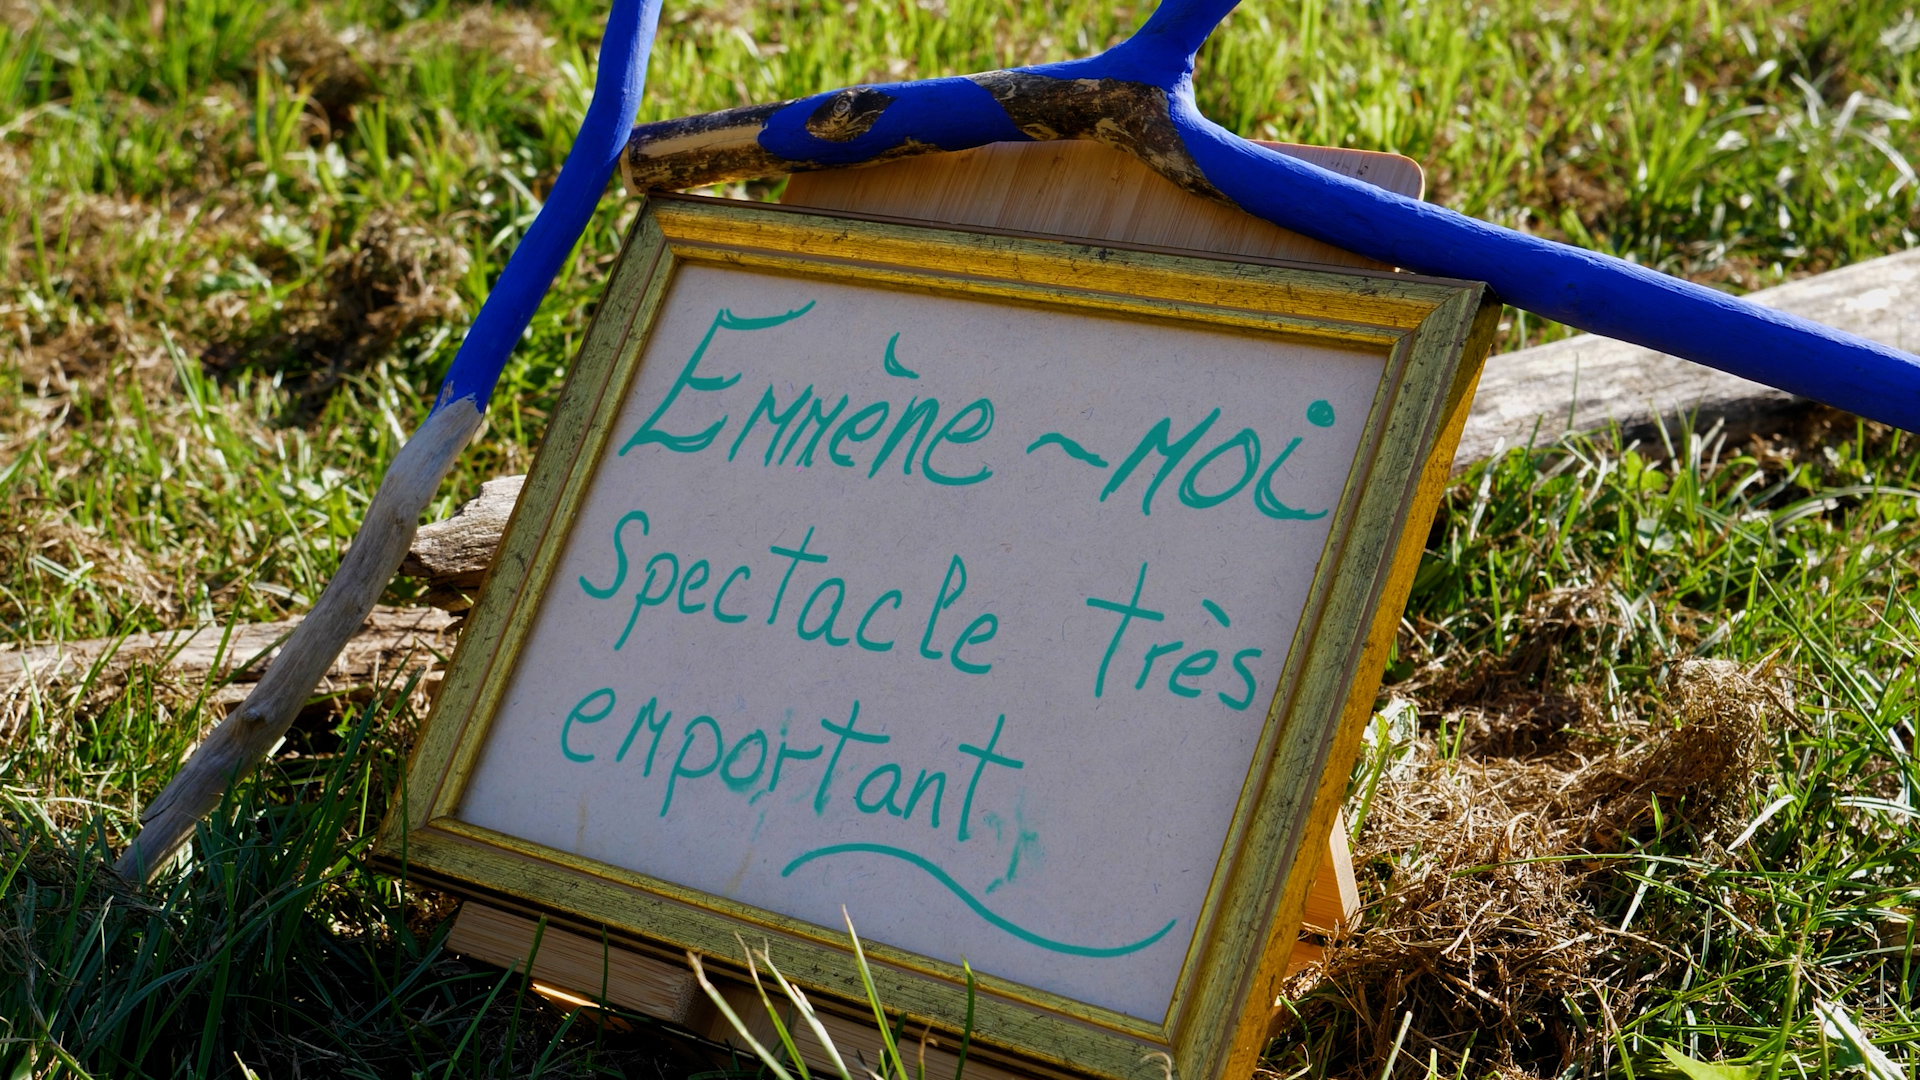 Emmène~moi
Spectacle très
emportant